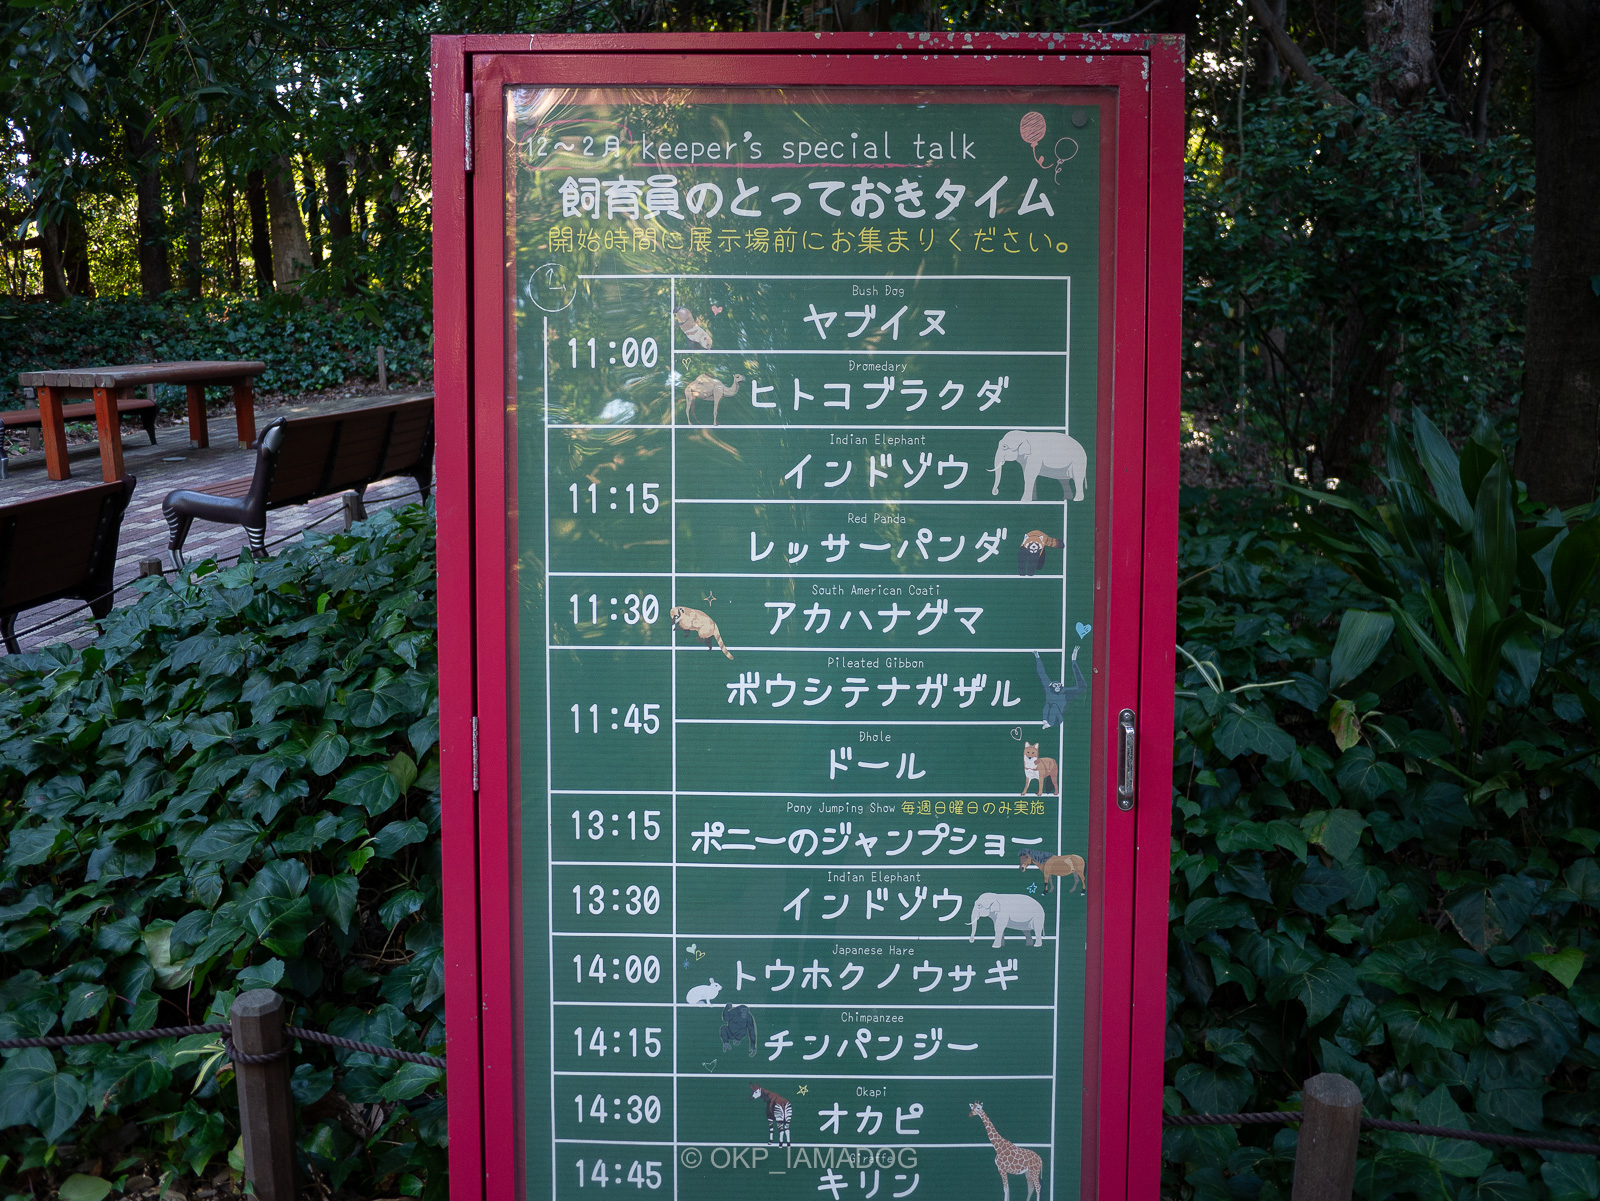 12～2月 keeper's special talk
飼育員のとっておきタイム
開始時間に展示場前にお集まりください。
11:00
Bush Dog
ヤブイヌ
Dromedary
ヒトコブラクダ
11:15
Indian Elephant
インドゾウ
Red Panda
レッサーパンダ
11:30
South American Coati
アカハナグマ
11:45
Pileated Gibbon
ボウシテナガザル
Dhole
ドール
13:15
Pony Jumping Show 毎週日曜日のみ実施
ポニーのジャンプショー
13:30
Indian Elephant
インドゾウ
14:00
Japanese Hare
トウホクノウサギ
14:15
Chimpanzee
チンパンジー
14:30
Okapi
オカピ
14:45
Giraffe
キリン
© OKP_IAMADOG